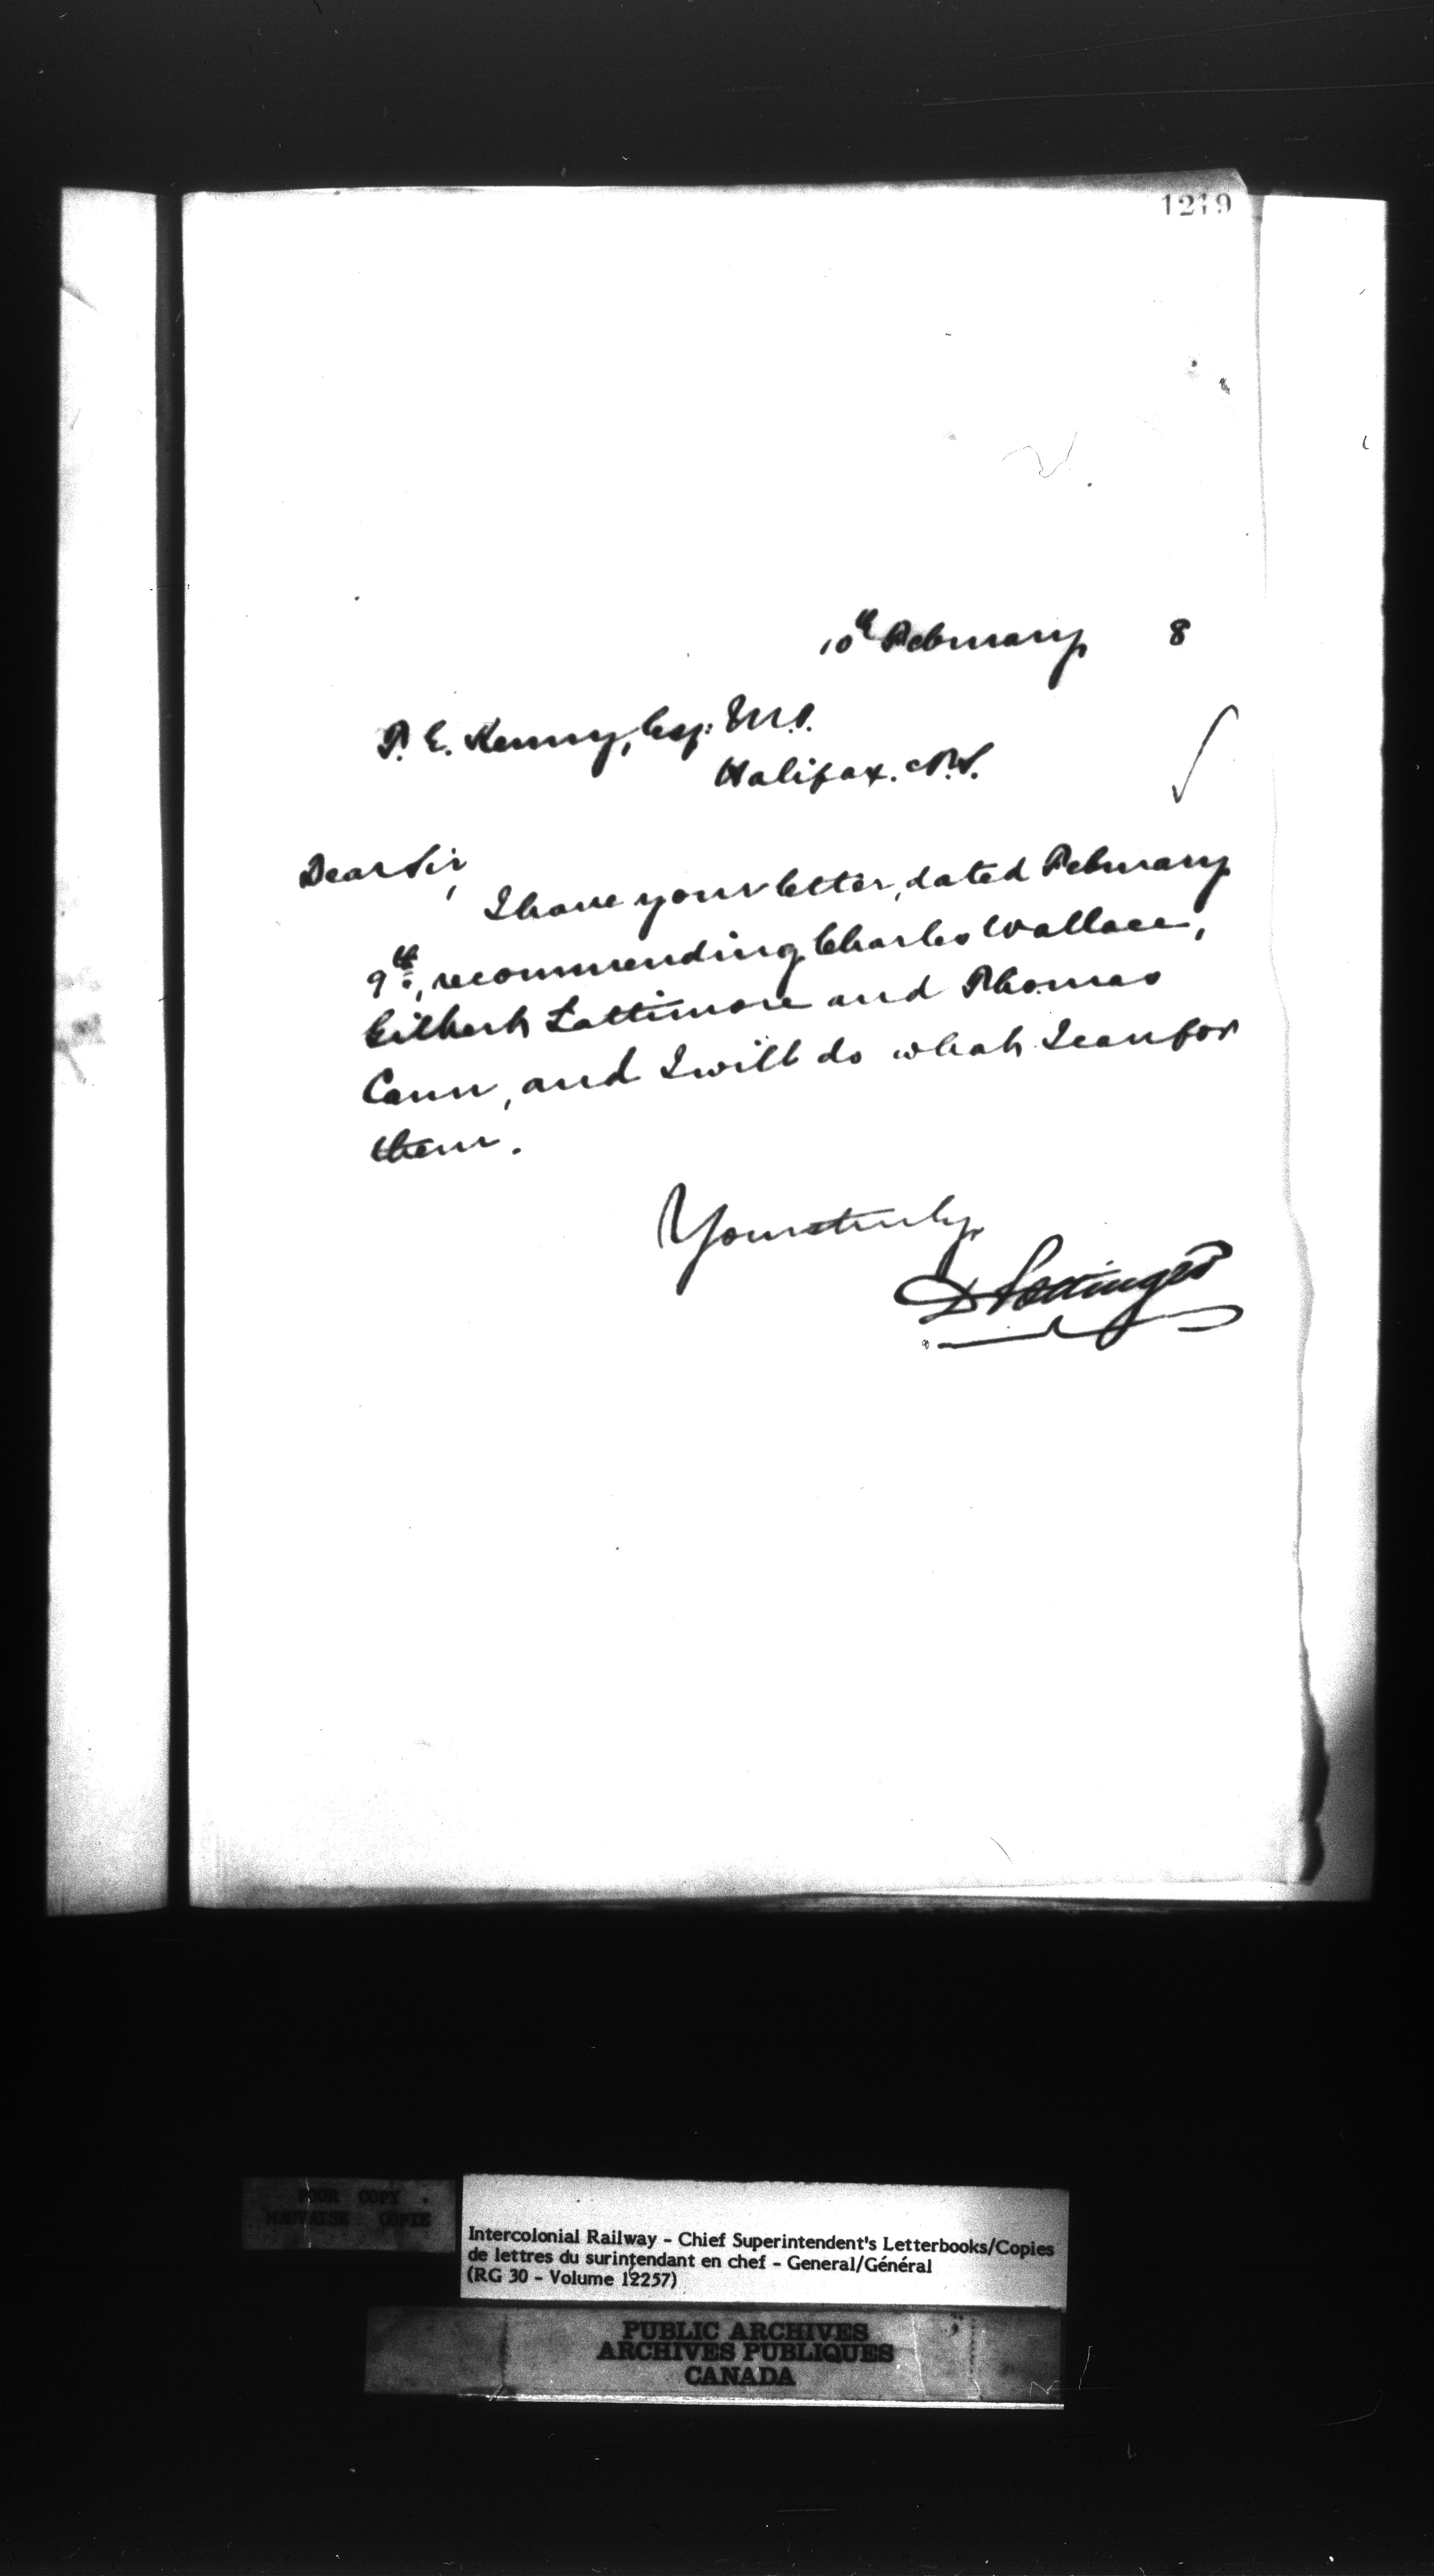 1219
10th February 8
T. E. Kenny, Esq: M.P.
Halifax. N.S.
Dear Sir,
I have your letter, dated February
9th, recommending Charles Wallace,
Gilbert Lattimore and Thomas
Cann, and I will do what I can for
them.
Yours truly,
D Pottinger
POOR COPY
MAUVAISE COPIE
Intercolonial Railway - Chief Superintendent's Letterbooks/Copies
de lettres du surintendant en chef - General/Général
(RG 30 - Volume 12257)
PUBLIC ARCHIVES
ARCHIVES PUBLIQUES
CANADA